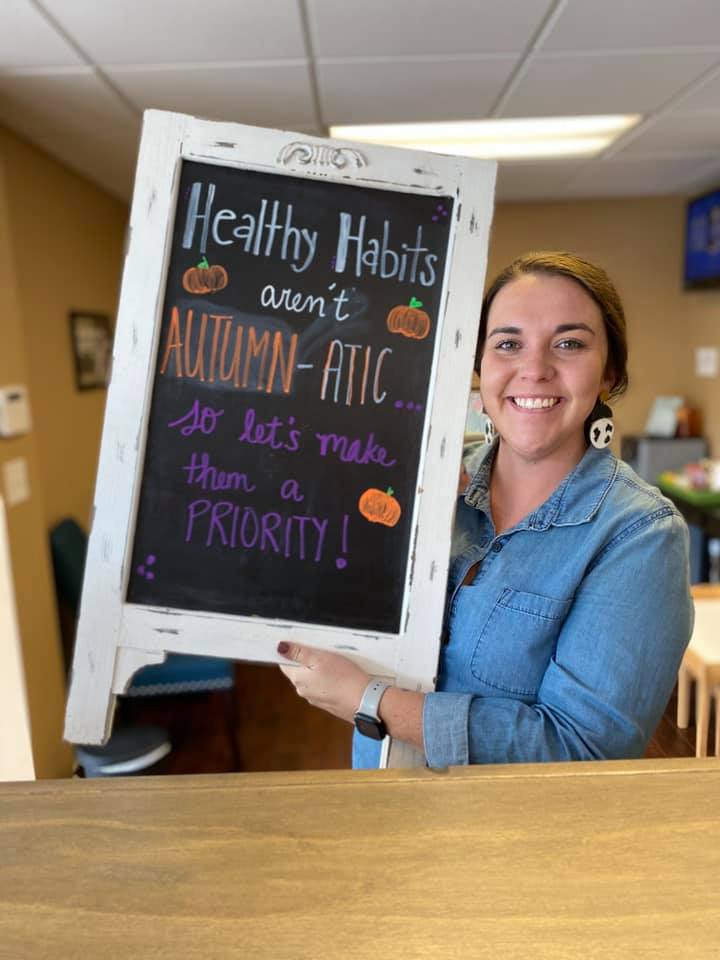 Healthy Habits
aren't
AUTUMN-ATIC...
so let's make
them a
PRIORITY!